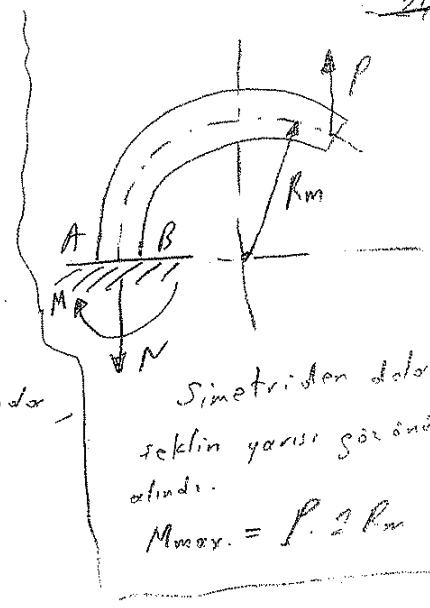 P
Rm
A B
M
N
Simetriden dola
şeklin yarısı göz önü
alındı.
Mmax. = P. 2 Rm